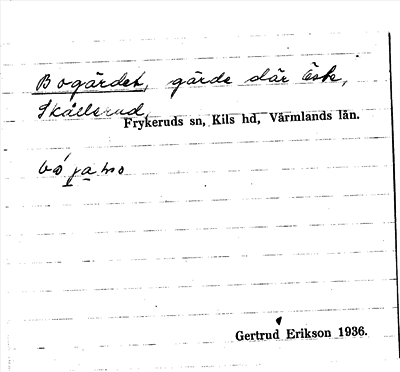 Bogärdet, gärde där Åsk,
Skållerud,
Frykeruds sn, Kils hd, Värmlands län.
Gertrud Erikson 1936.